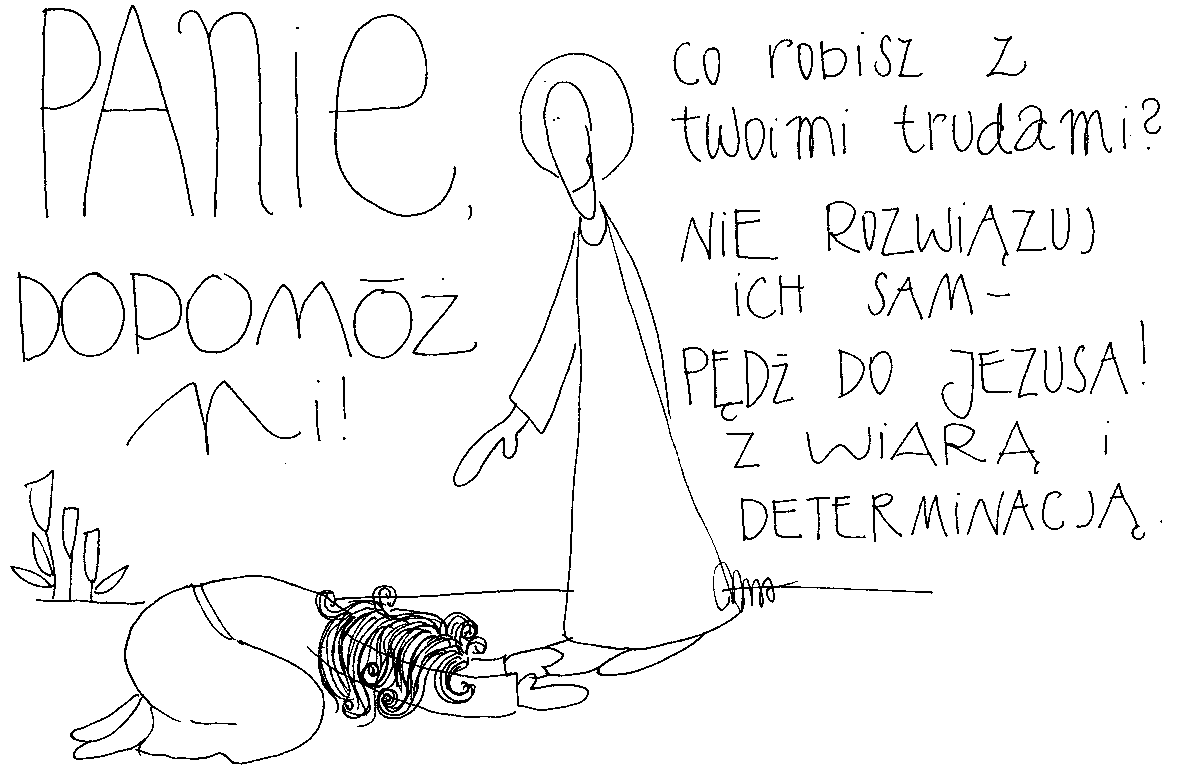 PANIE,
DOPOMÓŻ
MI!
CO ROBISZ Z
TWOIMI TRUDAMI?
NIE ROZWIĄZUJ
ICH SAM-
PĘDŹ DO JEZUSA!
Z WIARĄ I
DETERMINACJĄ.